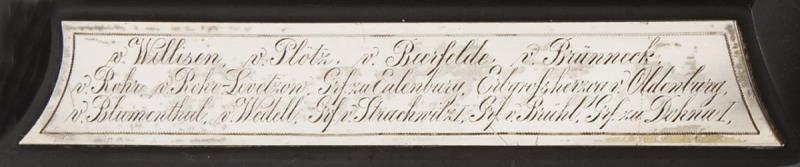 v. Willisen, v. Plötz, v. Beerfelde, v. Brünneck,
v. Rohr, v. Rohr-Levetzow, Grf. zu Eulenburg, Erbgroßherzog v. Oldenburg,
v. Blumenthal, v. Wedell, Grf. v. Strachwitz I, Grf. v. Brühl, Grf. zu Dohna I,